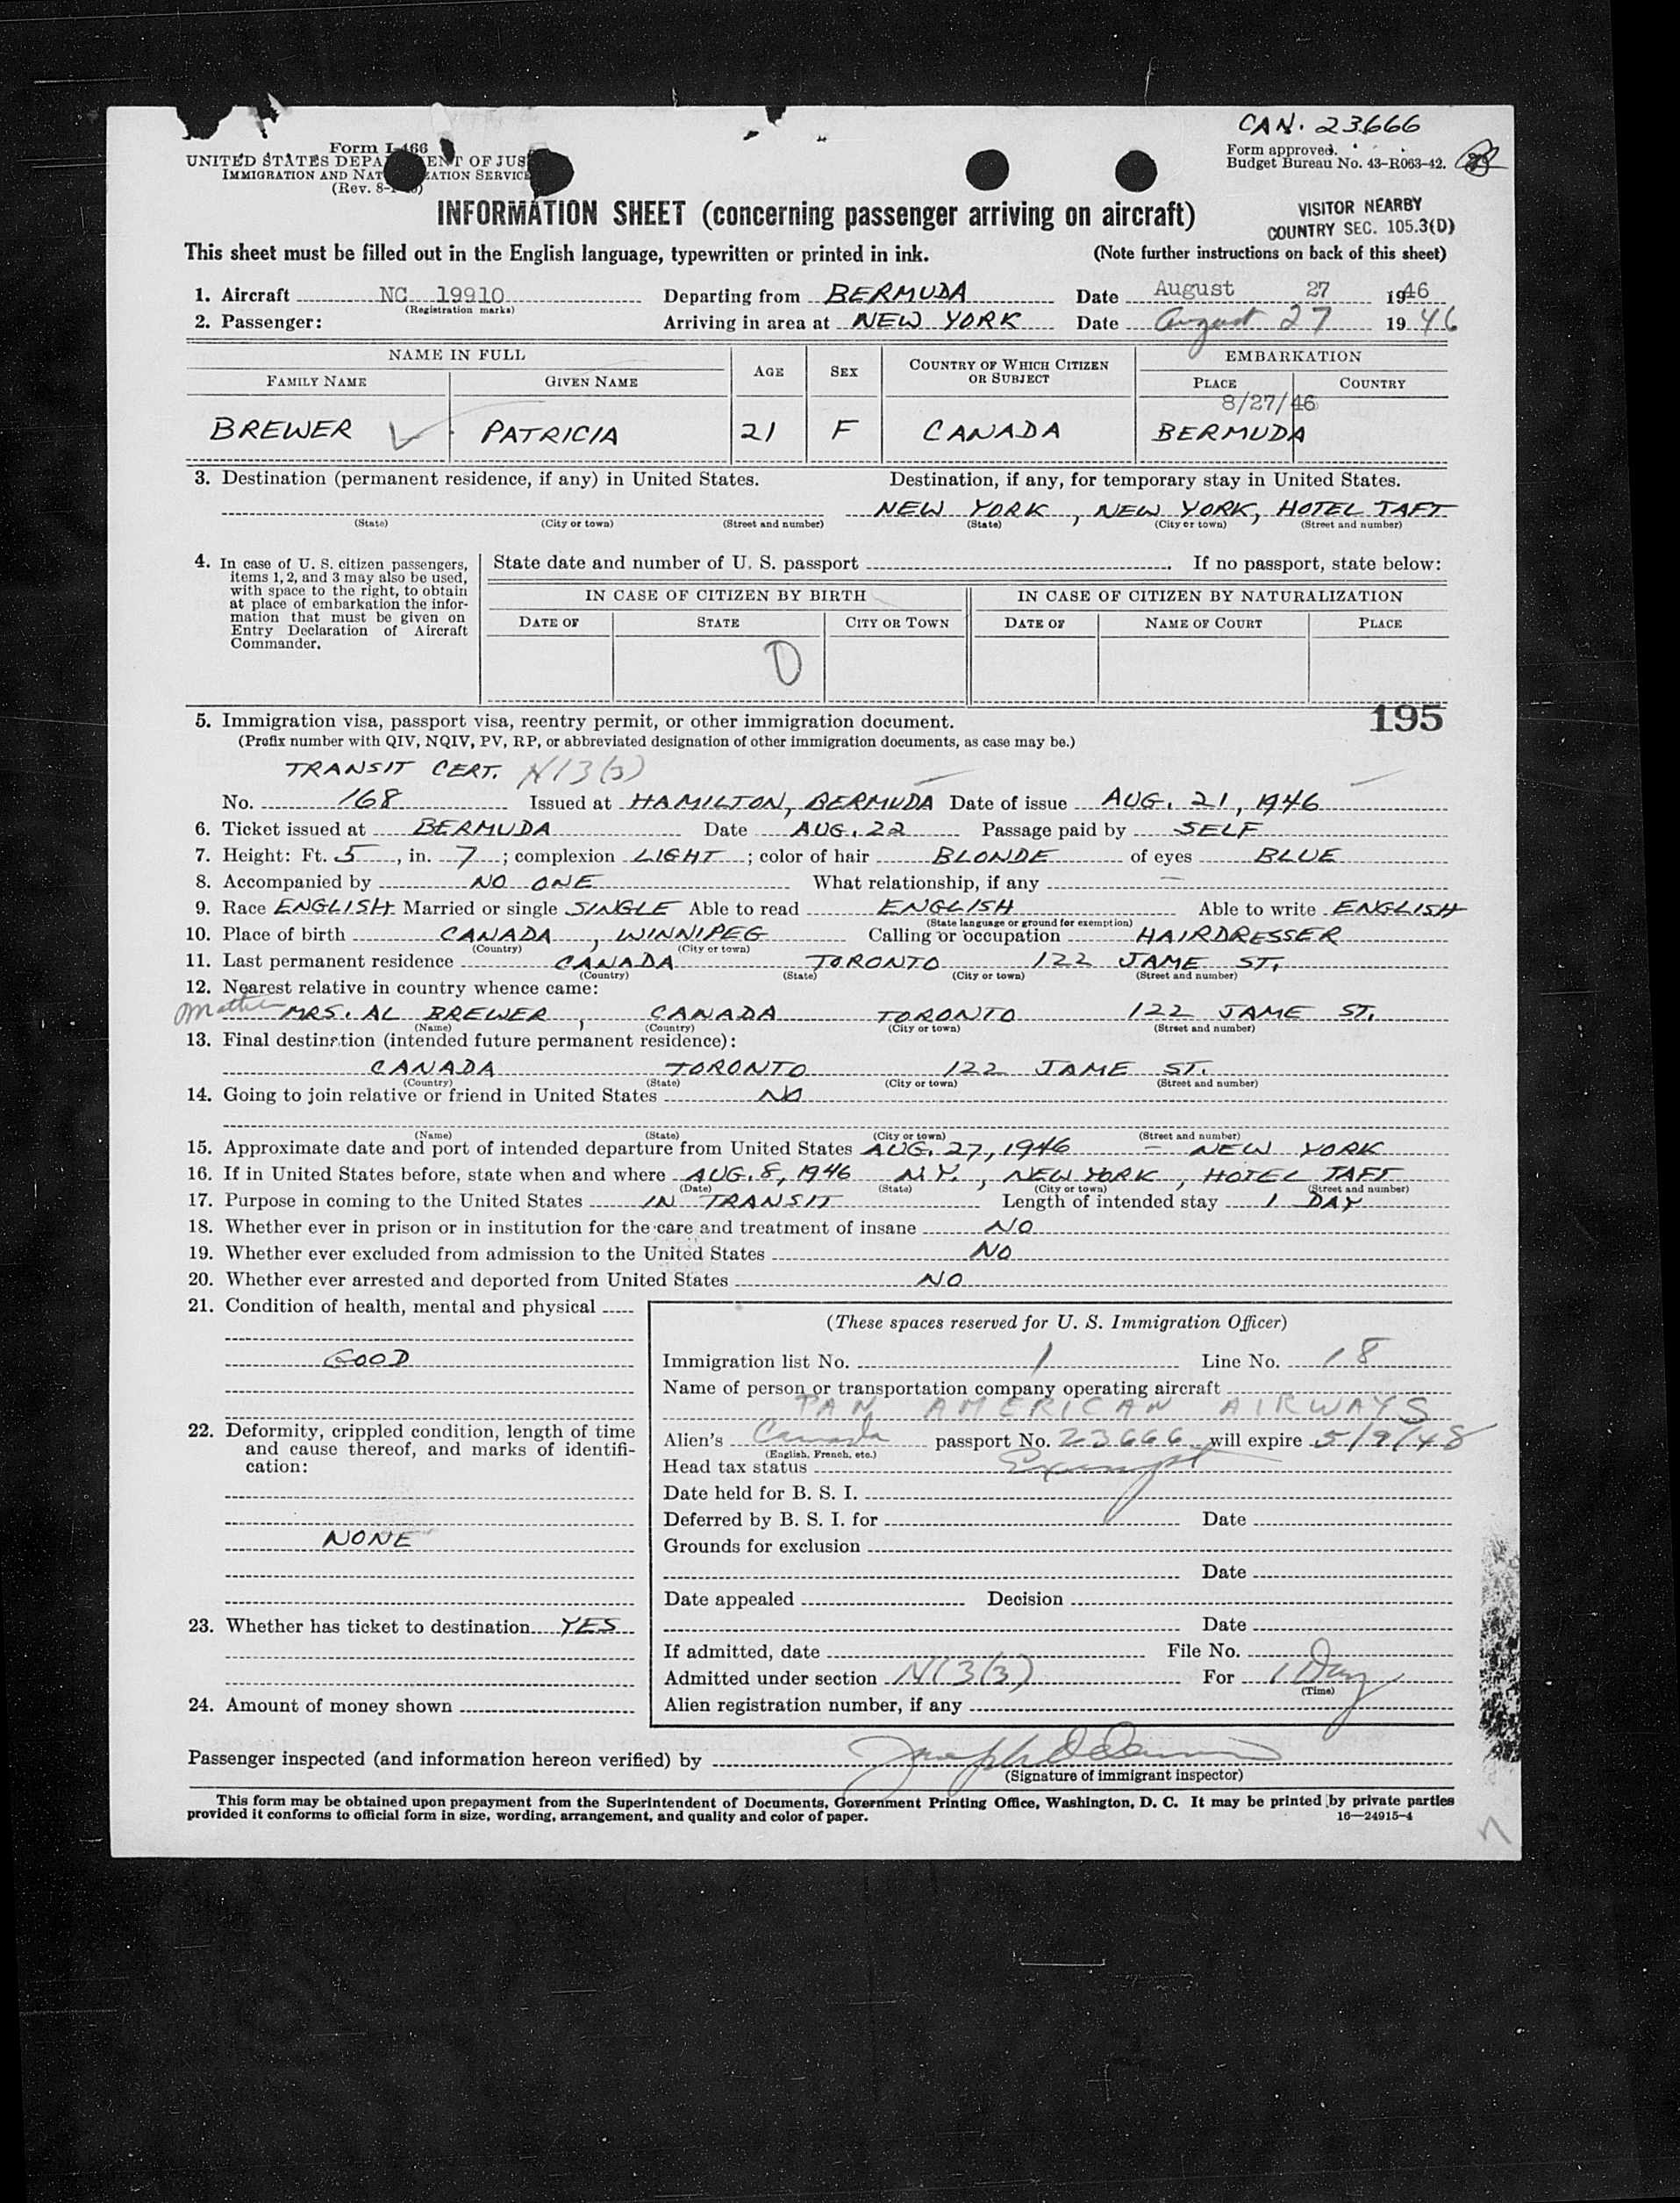 CAN. 23666
Form I-466
UNITED STATES DEPARTMENT OF JUSTICE
IMMIGRATION AND NATURALIZATION SERVICE
(Rev. 8-
Form approved.
Budget Bureau No. 43-R063-42.
INFORMATION SHEET (concerning passenger arriving on aircraft)
VISITOR NEARBY
COUNTRY SEC. 105.3(D)
This sheet must be filled out in the English language, typewritten or printed in ink. (Note further instructions on back of this sheet)
1. Aircraft NC 19910 Departing from BERMUDA Date August 27 1946
(Registration marks)
2. Passenger: Arriving in area at NEW YORK Date August 27 1946
NAME IN FULL AGE SEX COUNTRY OF WHICH CITIZEN OR SUBJECT EMBARKATION
FAMILY NAME GIVEN NAME PLACE COUNTRY
8/27/46
BREWER PATRICIA 21 F CANADA BERMUDA
3. Destination (permanent residence, if any) in United States. Destination, if any, for temporary stay in United States.
NEW YORK, NEW YORK, HOTEL TAFT
(State) (City or town) (Street and number) (State) (City or town) (Street and number)
4. In case of U. S. citizen passengers, items 1, 2, and 3 may also be used, with space to the right, to obtain at place of embarkation the information that must be given on Entry Declaration of Aircraft Commander.
State date and number of U. S. passport . If no passport, state below:
IN CASE OF CITIZEN BY BIRTH IN CASE OF CITIZEN BY NATURALIZATION
DATE OF STATE CITY OR TOWN DATE OF NAME OF COURT PLACE
195
5. Immigration visa, passport visa, reentry permit, or other immigration document.
(Prefix number with QIV, NQIV, PV, RP, or abbreviated designation of other immigration documents, as case may be.)
TRANSIT CERT. N13(3)
No. 168 Issued at HAMILTON, BERMUDA Date of issue AUG. 21, 1946
6. Ticket issued at BERMUDA Date AUG. 22 Passage paid by SELF
7. Height: Ft. 5, in. 7; complexion LIGHT; color of hair BLONDE of eyes BLUE
8. Accompanied by NO ONE What relationship, if any —
9. Race ENGLISH Married or single SINGLE Able to read ENGLISH Able to write ENGLISH
(State language or ground for exemption)
10. Place of birth CANADA, WINNIPEG Calling or occupation HAIRDRESSER
(Country) (City or town)
11. Last permanent residence CANADA TORONTO 122 JAME ST.
(Country) (State) (City or town) (Street and number)
12. Nearest relative in country whence came:
Mother MRS. AL BREWER, CANADA TORONTO 122 JAME ST.
(Name) (Country) (City or town) (Street and number)
13. Final destination (intended future permanent residence):
CANADA TORONTO 122 JAME ST.
(Country) (State) (City or town) (Street and number)
14. Going to join relative or friend in United States NO
(Name) (State) (City or town) (Street and number)
15. Approximate date and port of intended departure from United States AUG. 27, 1946 - NEW YORK
16. If in United States before, state when and where AUG. 8, 1946 N.Y., NEW YORK, HOTEL TAFT
(Date) (State) (City or town) (Street and number)
17. Purpose in coming to the United States IN TRANSIT Length of intended stay 1 DAY
18. Whether ever in prison or in institution for the care and treatment of insane NO
19. Whether ever excluded from admission to the United States NO
20. Whether ever arrested and deported from United States NO
21. Condition of health, mental and physical
GOOD
22. Deformity, crippled condition, length of time
and cause thereof, and marks of identification:
NONE
23. Whether has ticket to destination YES
24. Amount of money shown
(These spaces reserved for U. S. Immigration Officer)
Immigration list No. 1 Line No. 18
Name of person or transportation company operating aircraft
PAN AMERICAN AIRWAYS
Alien's Canada passport No. 23666 will expire 5/9/48
(English, French, etc.)
Head tax status Exempt
Date held for B. S. I.
Deferred by B. S. I. for Date
Grounds for exclusion
Date
Date appealed Decision
Date
If admitted, date File No.
Admitted under section N(3(3) For 1 Day
(Time)
Alien registration number, if any
Passenger inspected (and information hereon verified) by
(Signature of immigrant inspector)
This form may be obtained upon prepayment from the Superintendent of Documents, Government Printing Office, Washington, D. C. It may be printed by private parties
provided it conforms to official form in size, wording, arrangement, and quality and color of paper. 16—24915-4